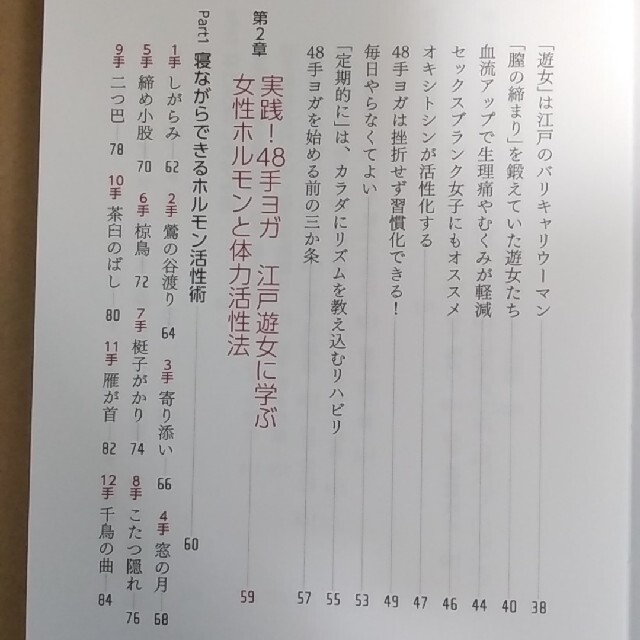 「遊女」は江戸のバリキャリウーマン 38
「膣の締まり」を鍛えていた遊女たち 40
血流アップで生理痛やむくみが軽減 44
セックスブランク女子にもオススメ 46
オキシトシンが活性化する 47
48手ヨガは挫折せず習慣化できる！ 49
毎日やらなくてよい 53
「定期的に」は、カラダにリズムを教え込むリハビリ 55
48手ヨガを始める前の三か条 57
第2章 実践！48手ヨガ 江戸遊女に学ぶ
女性ホルモンと体力活性法 59
Part1 寝ながらできるホルモン活性術 60
1手 しがらみ 62 2手 鶯の谷渡り 64 3手 寄り添い 66 4手 窓の月 68
5手 締め小股 70 6手 椋鳥 72 7手 梃子がかり 74 8手 こたつ隠れ 76
9手 二つ巴 78 10手 茶臼のばし 80 11手 雁が首 82 12手 千鳥の曲 84